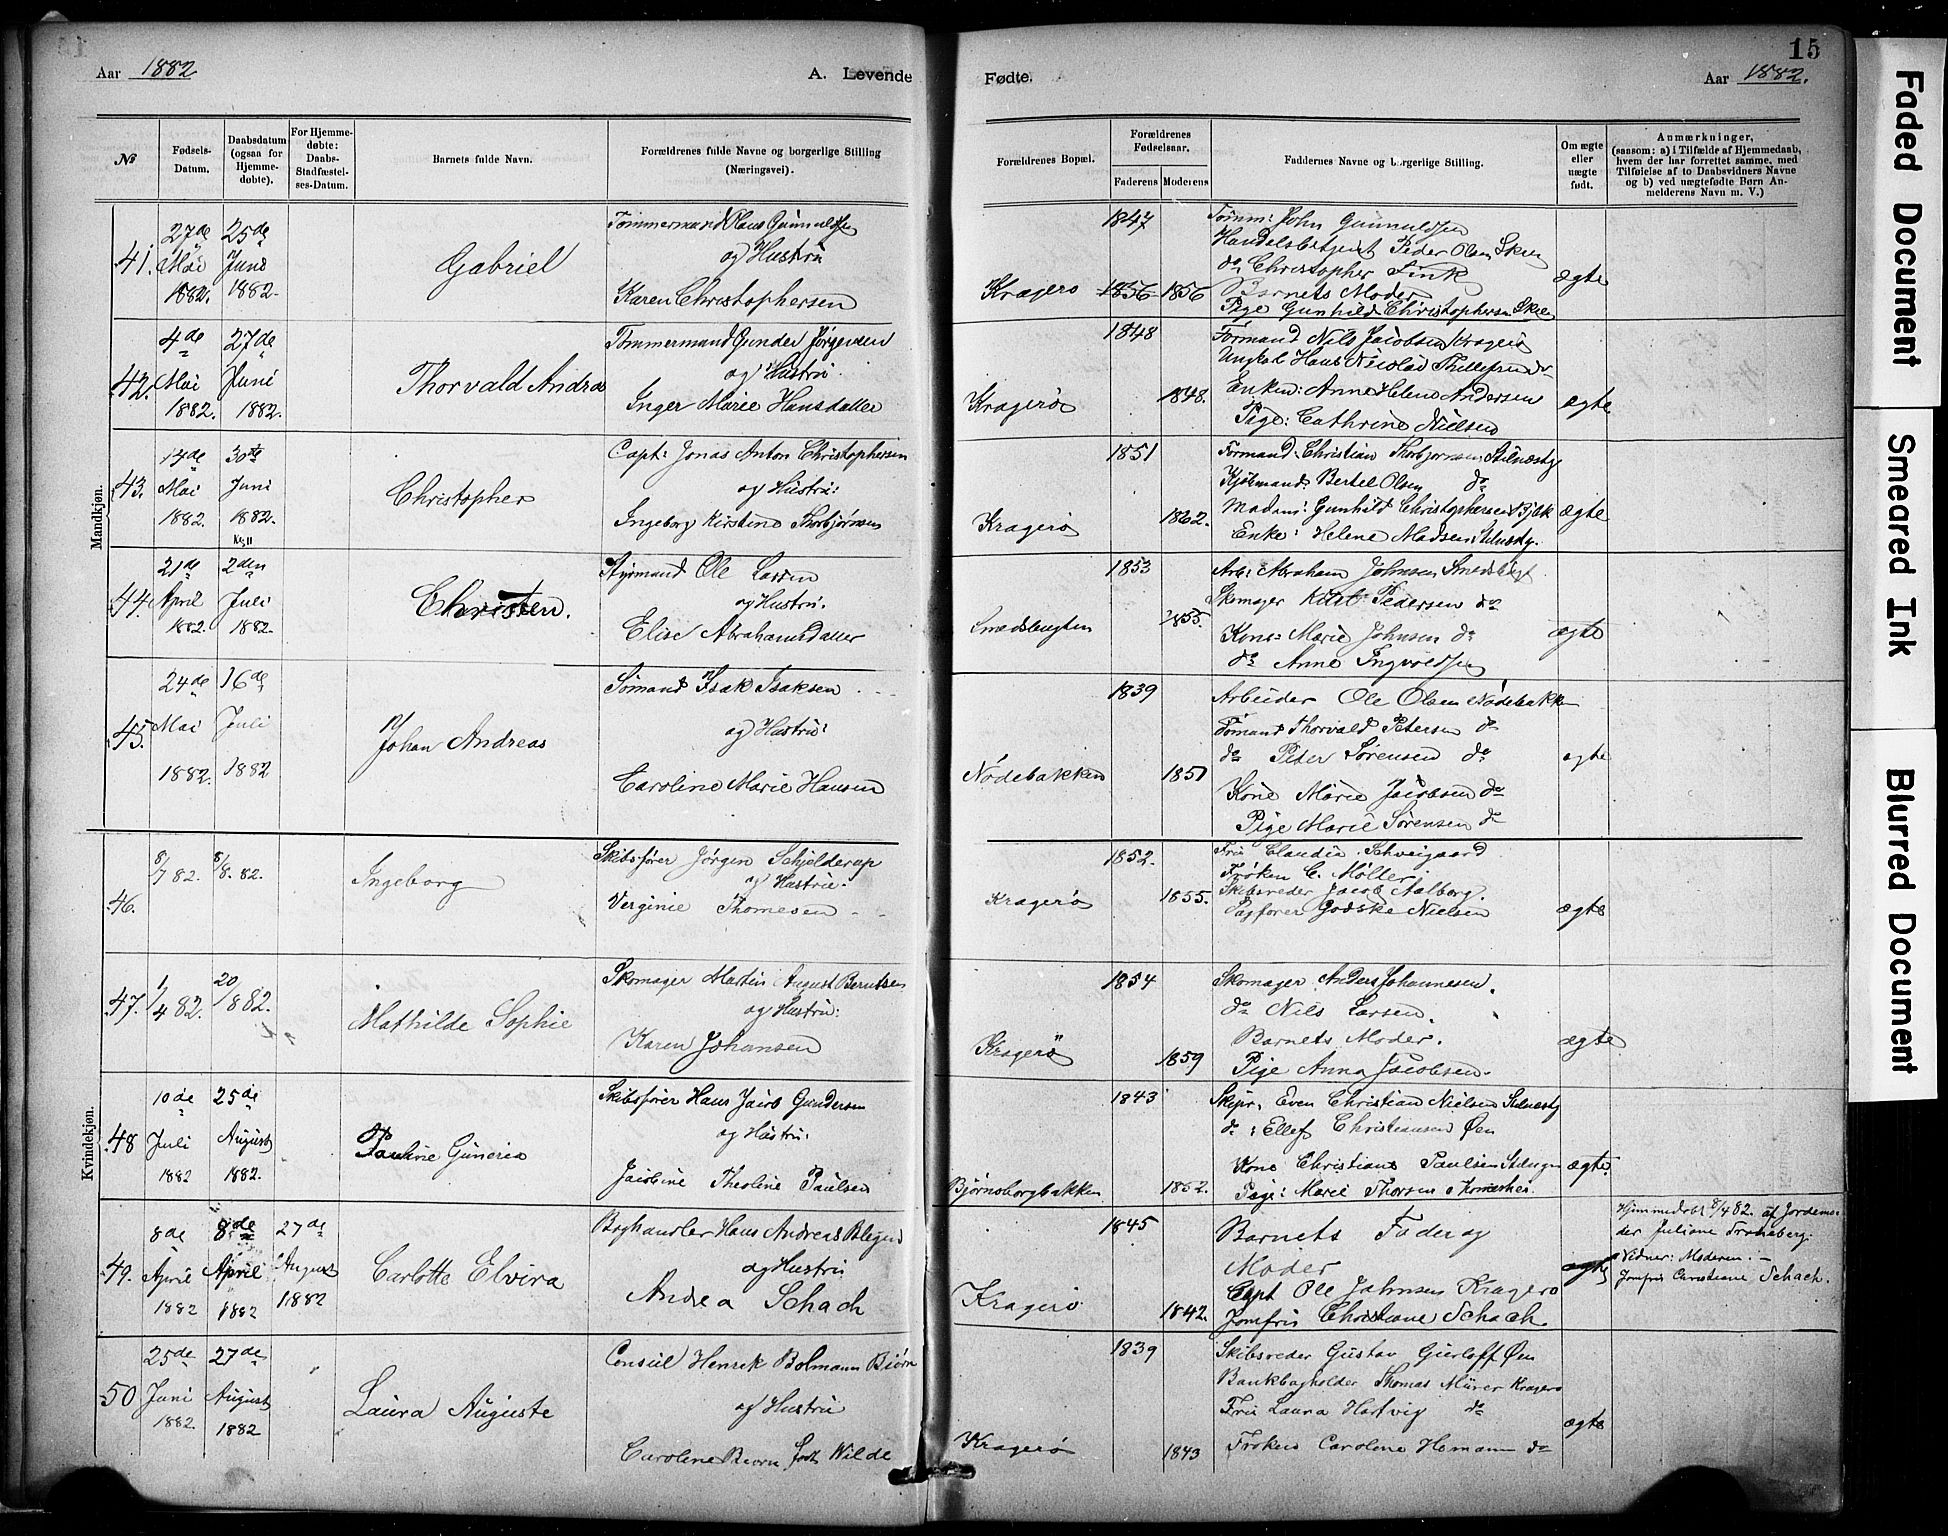 15
Aar 1882
A. Levende Fødte.
Aar 1882.
No
Fødsels-Datum.
Daabsdatum (ogsaa for Hjemme-døbte).
For Hjemme-døbte: Daabs-Stadfæstel-ses-Datum.
Barnets fulde Navn.
Forældrenes fulde Navne og borgerlige Stilling (Næringsvei).
Forældrenes Bopæl.
Forældrenes Fødselsaar.
Faderens
Moderens
Faddernes Navne og borgerlige Stilling.
Om ægte eller uægte født.
Anmærkninger,
(saasom: a) i Tilfælde af Hjemmedaab,
hvem der har forrettet samme, med
Tilføielse af to Daabsvidners Navne
og b) ved uægtefødte Børn An-
melderens Navn m. V.)
Mandkjøn.
41.
27de Mai 1882.
25de Juni 1882.
Gabriel
Tømmermand Hans Gunnuldsen
og Hustru
Karen Christophersen
Kragerø
1847
1856 1856
Tømm: John Gunnuldsen
Handelsbetjent Peder Olsen Skien
do Christopher Fink
Barnets Moder
Pige Gunhild Christophersen Skien
ægte
42.
4de Mai 1882.
27de Juni 1882.
Thorvald Andreas
Tømmermand Gunder Jørgensen
og Hustru.
Inger Marie Hansdatter
Kragerø
1848
1848.
Tømand Nils Jacobsen Kragerø
Ungkal Hans Nicolai Thellefsen do
Enken: Anne Helene Andersen
Pige: Cathrine Nielsen
ægte
43.
14de Mai 1882.
30te Juni 1882.
Christopher
Capt: Jonas Anton Christophersen
og Hustru:
Ingeborg Kirstine Thorbjørnsen
Kragerø
1851
1862.
Tømand: Christian Thorbjørnsen
Kjøbmand: Bertel Olsen do
Madam: Gunhild Christophersen
Enke: Helene Madsen
ægte
44.
21de April 1882.
2den Juli 1882.
Christen.
Styrmand Ole Larsen
og Hustru.
Elise Abrahamsdatter
Smedsbugten
1853
1855.
Arb: Abraham Johnsen Smedsbugt
Skomager Pedersen do
Kone: Marie Johnsen do
do Anne Ingvoldsen
ægte
45.
24de Mai 1882.
16de Juli 1882
Johan Andreas
Sømand Isak Isaksen
og Hustru:
Caroline Marie Hansen
Nødebakken
1839
1851
Arbeider Ole Olsen Nødebakken
Tømand Thorvald Petersen do
do Peder Sørensen do
Kone Marie Jacobsen do
Pige Marie Sørensen do
ægte
Kvindekjøn.
46.
8/7 82.
8/8. 82.
Ingeborg
Skibsfører Jørgen Schjelderup
og Hustru.
Verginie Thomesen
Kragerø
1852.
1855.
Fru Claudia Schveigaard
Frøken C. Møller
Skibsreder Jacob Aalborg.
Sagfører Godske Nielsen
ægte
47.
1/4 82.
20/8 82.
Mathilde Sophie
Skomager Martin August Berntsen
og Hustru:
Karen Johansen
Kragerø
1854
1859
Skomager Anders Johannesen.
do Nils Larsen.
Barnets Moder.
Pige Anna Jacobsen.
ægte
48
10de Juli 1882
25de August 1882.
Pauline Guneria
Skibsfører Hans Jacob Gundersen
og Hustru:
Jacobine Theoline Paulsen
Bjørnsborgbakken
1843
1852.
Skipr. Even Christian Nielsen
do: Ellef Christiansen Øen
Kone Christiane Paulsen
Pige: Marie Thorsen
ægte.
49.
8de April 1882
8de April 1882
27de August 1882
Carlotte Elvira
Boghandler Hans Andreas Blegen
og Hustru
Andrea Schach
Kragerø
1845
1842.
Barnets Fader og
Moder
Capt Ole Johnsen Kragerø
Jomfru Christiane Schach.
ægte
Hjemmedøbt 8/4 82. af Jordemo-
der Juliane
Vidner: Moderen. –
Jomfru Christiane Schach.
50
25de Juni 1882
27de August 1882
Laura Auguste
Consul Henrik Bolmann Biørn
og Hustru
Caroline Biørn født Wilde
Kragerø
1839
1843
Skibsreder Gustav Gierløff Øen
Bankbogholder Thomas Mürer Kragerø
Fru Laura Hartvig do
Frøken Caroline Homann do
ægte
Faded Document
Smeared Ink
Blurred Document